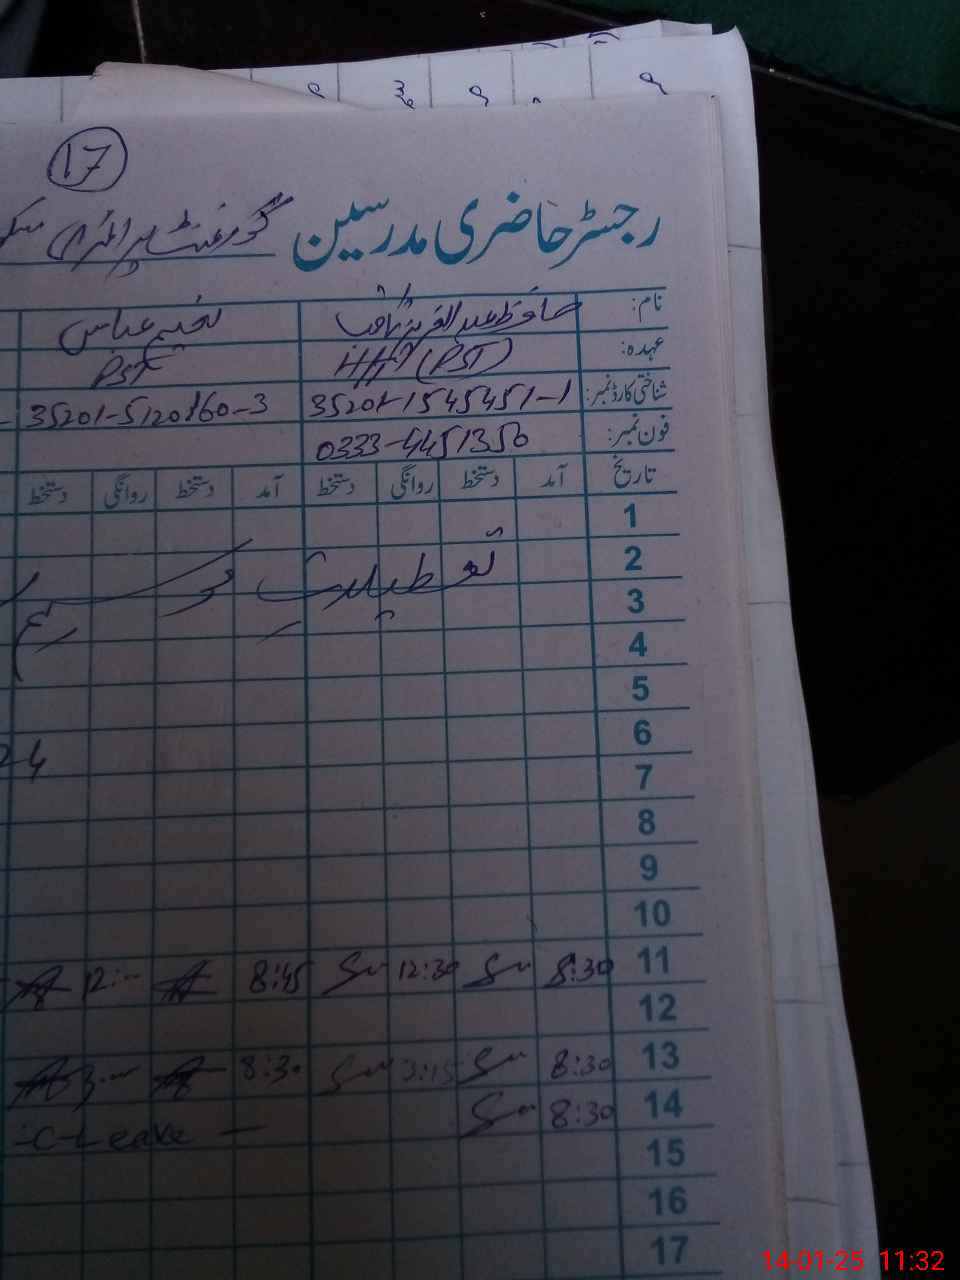 17
رجسٹر حاضری مدرسین گورنمنٹ پرائمری
نام: حافظ عبدالعزیز عباس
عہدہ: (PST) PST
شناختی کارڈ نمبر: 35201-1545451-1 35201-5120160-3
فون نمبر: 0333-4451350
تاریخ آمد دستخط روانگی دستخط آمد دستخط روانگی دستخط
1
2 تعطیلات
3
4
5
6
7
8
9
10
11 8:30 12:30 8:45 12:--
12
13 8:30 3:15 8:30 3:--
14 8:30 -C-Leave-
15
16
17
14-01-25 11:32